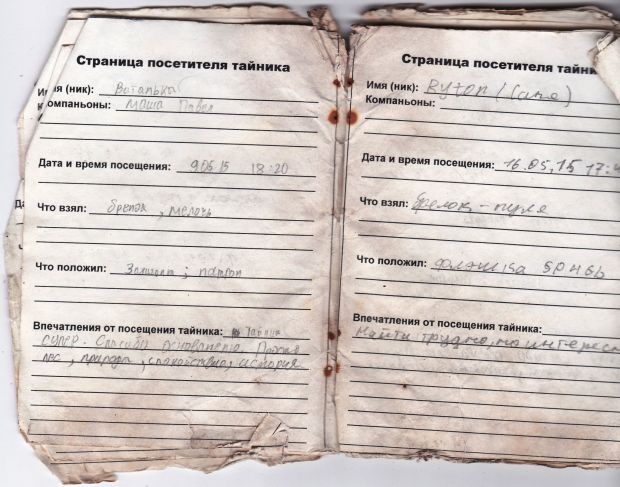 Страница посетителя тайника
Имя (ник): Виталька
Компаньоны: Маша Павел
Дата и время посещения: 9.05.15 18:20
Что взял: брелок, мелочь
Что положил: патрон
Впечатления от посещения тайника: Тайник
супер. Спасибо основателю.
лес, природа, спокойствие, история
Да
Страница посетителя тайни
Имя (ник): Ryton (Саня)
Компаньоны:
Дата и время посещения: 16.05.15 17:4
Что взял: брелок-пуля
Что положил: фл
Впечатления от посещения тайника:
Найти трудно, но интересн